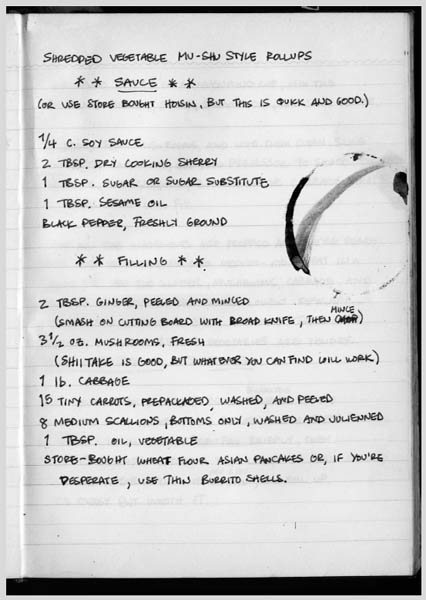 SHREDDED VEGETABLE MU-SHU STYLE ROLLUPS
* * SAUCE * *
(OR USE STORE BOUGHT HOISIN, BUT THIS IS QUICK AND GOOD.)
1/4 C. SOY SAUCE
2 TBSP. DRY COOKING SHERRY
1 TBSP. SUGAR OR SUGAR SUBSTITUTE
1 TBSP. SESAME OIL
BLACK PEPPER, FRESHLY GROUND
* * FILLING * *
2 TBSP. GINGER, PEELED AND MINCED
(SMASH ON CUTTING BOARD WITH BROAD KNIFE, THEN MINCE)
3 1/2 OZ. MUSHROOMS, FRESH
(SHIITAKE IS GOOD, BUT WHATEVER YOU CAN FIND WILL WORK)
1 lb. CABBAGE
15 TINY CARROTS, PREPACKAGED, WASHED, AND PEELED
8 MEDIUM SCALLIONS, BOTTOMS ONLY, WASHED AND JULIENNED
1 TBSP. OIL, VEGETABLE
STORE-BOUGHT WHEAT FLOUR ASIAN PANCAKES OR, IF YOU'RE
DESPERATE, USE THIN BURRITO SHELLS.